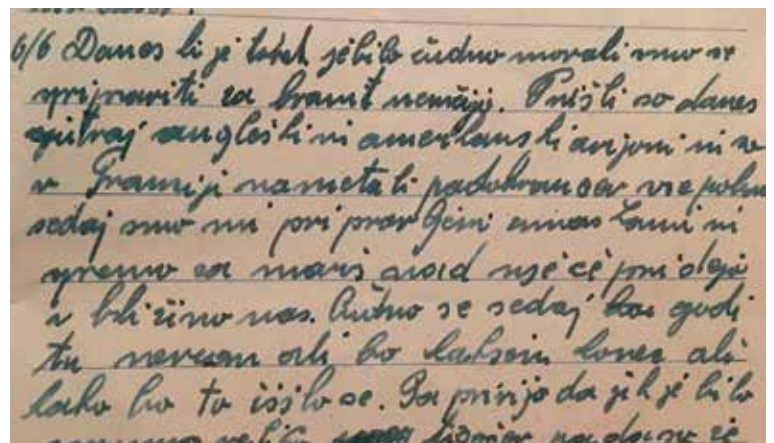 6/6 Danes ki je torek je bilo čudno morali smo se
pripraviti za branit nemčijo. Prišli so danes
zjutraj angleški ni amerikanski avijoni ni so
v Franciji nametali padobrancev vse polno
sedaj smo mi pripravljeni ni
gremo za mars nad nje če pridejo
v bližino nas. Čudno se sedaj godi
tu nevem ali bo kakšen konec ali
kako bo to išlo se. Pa pravijo da jih je bilo